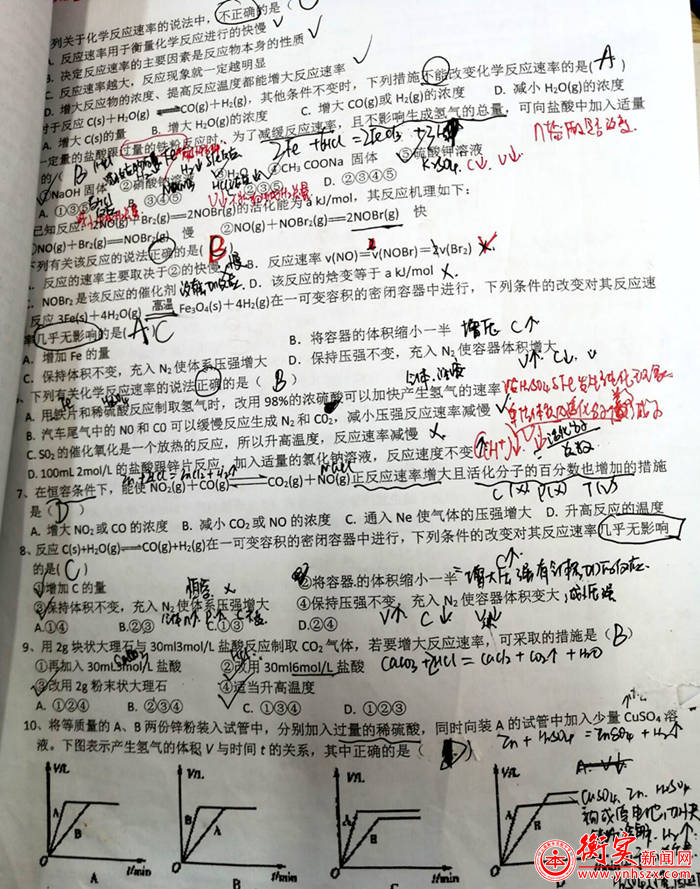 列关于化学反应速率的说法中，不正确的是（
A. 反应速率用于衡量化学反应进行的快慢
B. 决定反应速率的主要因素是反应物本身的性质
C. 反应速率越大，反应现象就一定越明显
D. 增大反应物的浓度、提高反应温度都能增大反应速率
对于反应 C(s)+H₂O(g) ⇌ CO(g)+H₂(g)，其他条件不变时，下列措施不能改变化学反应速率的是( A )
A. 增大C(s)的量 B. 增大 H₂O(g)的浓度 C. 增大 CO(g)或 H₂(g)的浓度 D. 减小 H₂O(g)的浓度
一定量的盐酸跟过量的铁粉反应时，为了减缓反应速率，且不影响生成氢气的总量，可向盐酸中加入适量
的( B
①NaOH 固体 ②硝酸钠溶液 ③H₂O ④CH₃COONa 固体 ⑤硫酸钾溶液
K₂SO₄ C↓ V↓
A. ①③⑤ B. ③④⑤ C. ①②③⑤ D. ②③④⑤
已知反应：2NO(g)+Br₂(g)══2NOBr(g)的活化能为 a kJ/mol，其反应机理如下：
①NO(g)+Br₂(g)══NOBr₂(g) 慢 ②NO(g)+NOBr₂(g)══2NOBr(g) 快
下列有关该反应的说法正确的是( B
反应的速率主要取决于②的快慢 慢 B. 反应速率 v(NO)=v(NOBr)=2v(Br₂)
NOBr₂是该反应的催化剂 D. 该反应的焓变等于 a kJ/mol
反应 3Fe(s)+4H₂O(g) ⇌高温 Fe₃O₄(s)+4H₂(g)在一可变容积的密闭容器中进行，下列条件的改变对其反应速
率几乎无影响的是( A C
A. 增加 Fe 的量 B. 将容器的体积缩小一半 增压 C↑
C. 保持体积不变，充入 N₂使体系压强增大 D. 保持压强不变，充入 N₂使容器体积增大
V↑ C↓
下列有关化学反应速率的说法正确的是（ B ）
A. 用铁片和稀硫酸反应制取氢气时，改用 98%的浓硫酸可以加快产生氢气的速率
B. 汽车尾气中的 NO 和 CO 可以缓慢反应生成 N₂和 CO₂，减小压强反应速率减慢
C. SO₂的催化氧化是一个放热的反应，所以升高温度，反应速率减慢
D. 100mL 2mol/L 的盐酸跟锌片反应，加入适量的氯化钠溶液，反应速度不变
7、在恒容条件下，能使 NO₂(g)+CO(g) ⇌ CO₂(g)+NO(g)正反应速率增大且活化分子的百分数也增加的措施
是( D )
A. 增大 NO₂或 CO 的浓度 B. 减小 CO₂或 NO 的浓度 C. 通入 Ne 使气体的压强增大 D. 升高反应的温度
8、反应 C(s)+H₂O(g) ⇌ CO(g)+H₂(g)在一可变容积的密闭容器中进行，下列条件的改变对其反应速率几乎无影响
的是( C )
①增加 C 的量 ②将容器的体积缩小一半
③保持体积不变，充入 N₂使体系压强增大 ④保持压强不变，充入 N₂使容器体积变大
A.①④ B.②③ C.①③ D.②④
9、用 2g 块状大理石与 30ml3mol/L 盐酸反应制取 CO₂气体，若要增大反应速率，可采取的措施是（ B ）
①再加入 30mL3mol/L 盐酸 ②改用 30ml6mol/L 盐酸 CaCO₃+2HCl=CaCl₂+CO₂↑+H₂O
③改用 2g 粉末状大理石 ④适当升高温度
A. ①②④ B. ②③④ C. ①③④ D. ①②③
10、将等质量的 A、B 两份锌粉装入试管中，分别加入过量的稀硫酸，同时向装 A 的试管中加入少量 CuSO₄溶
液。下图表示产生氢气的体积 V 与时间 t 的关系，其中正确的是（
Zn+H₂SO₄=ZnSO₄+H₂↑
V/L V/L V/L V/L
A B B A A B A B
O t/min O t/min O t/min O
A B C D
CuSO₄ Zn H₂SO₄
构成原电池，加快
衡实新闻网
www.ynhszx.com